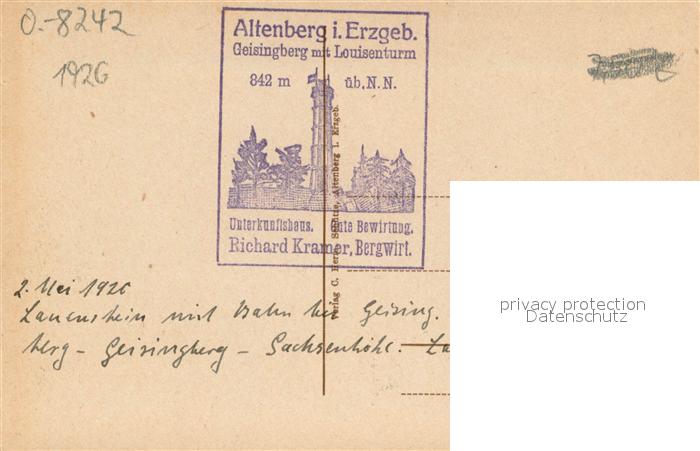 O.-8242
1926
Altenberg i. Erzgeb.
Geisingberg mit Louisenturm
842 m üb. N. N.
Unterkunftshaus. Gute Bewirtung.
Richard Kramer, Bergwirt.
Verlag C. Herm. Altenberg i. Erzgeb.
2. Mai 1926
Lauenstein mit Bahn bis Geising.
berg - Geisingberg - Sachsenhöhe. La
privacy protection
Datenschutz